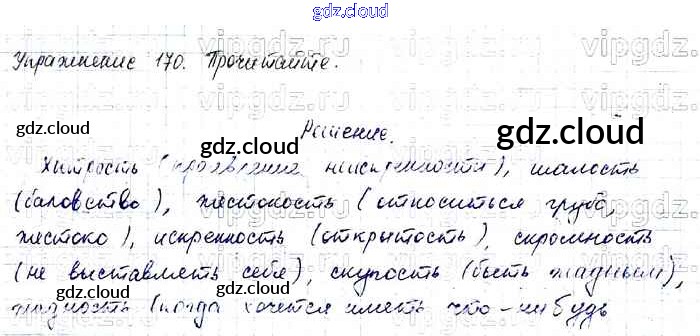 gdz.cloud
vipgdz.ru vipgdz.ru vipgdz.ru
Упражнение 170. Прочитайте.
gdz.cloud
gdz.cloud
Решение.
Хитрость (проявление неискренности), шалость
(баловство), жестокость (относиться грубо,
жестоко), искренность (открытость), скромность
(не выставлять себя), скупость (быть жадным),
жадность (когда хочется иметь что-нибудь
gdz.cloud
gdz.cloud